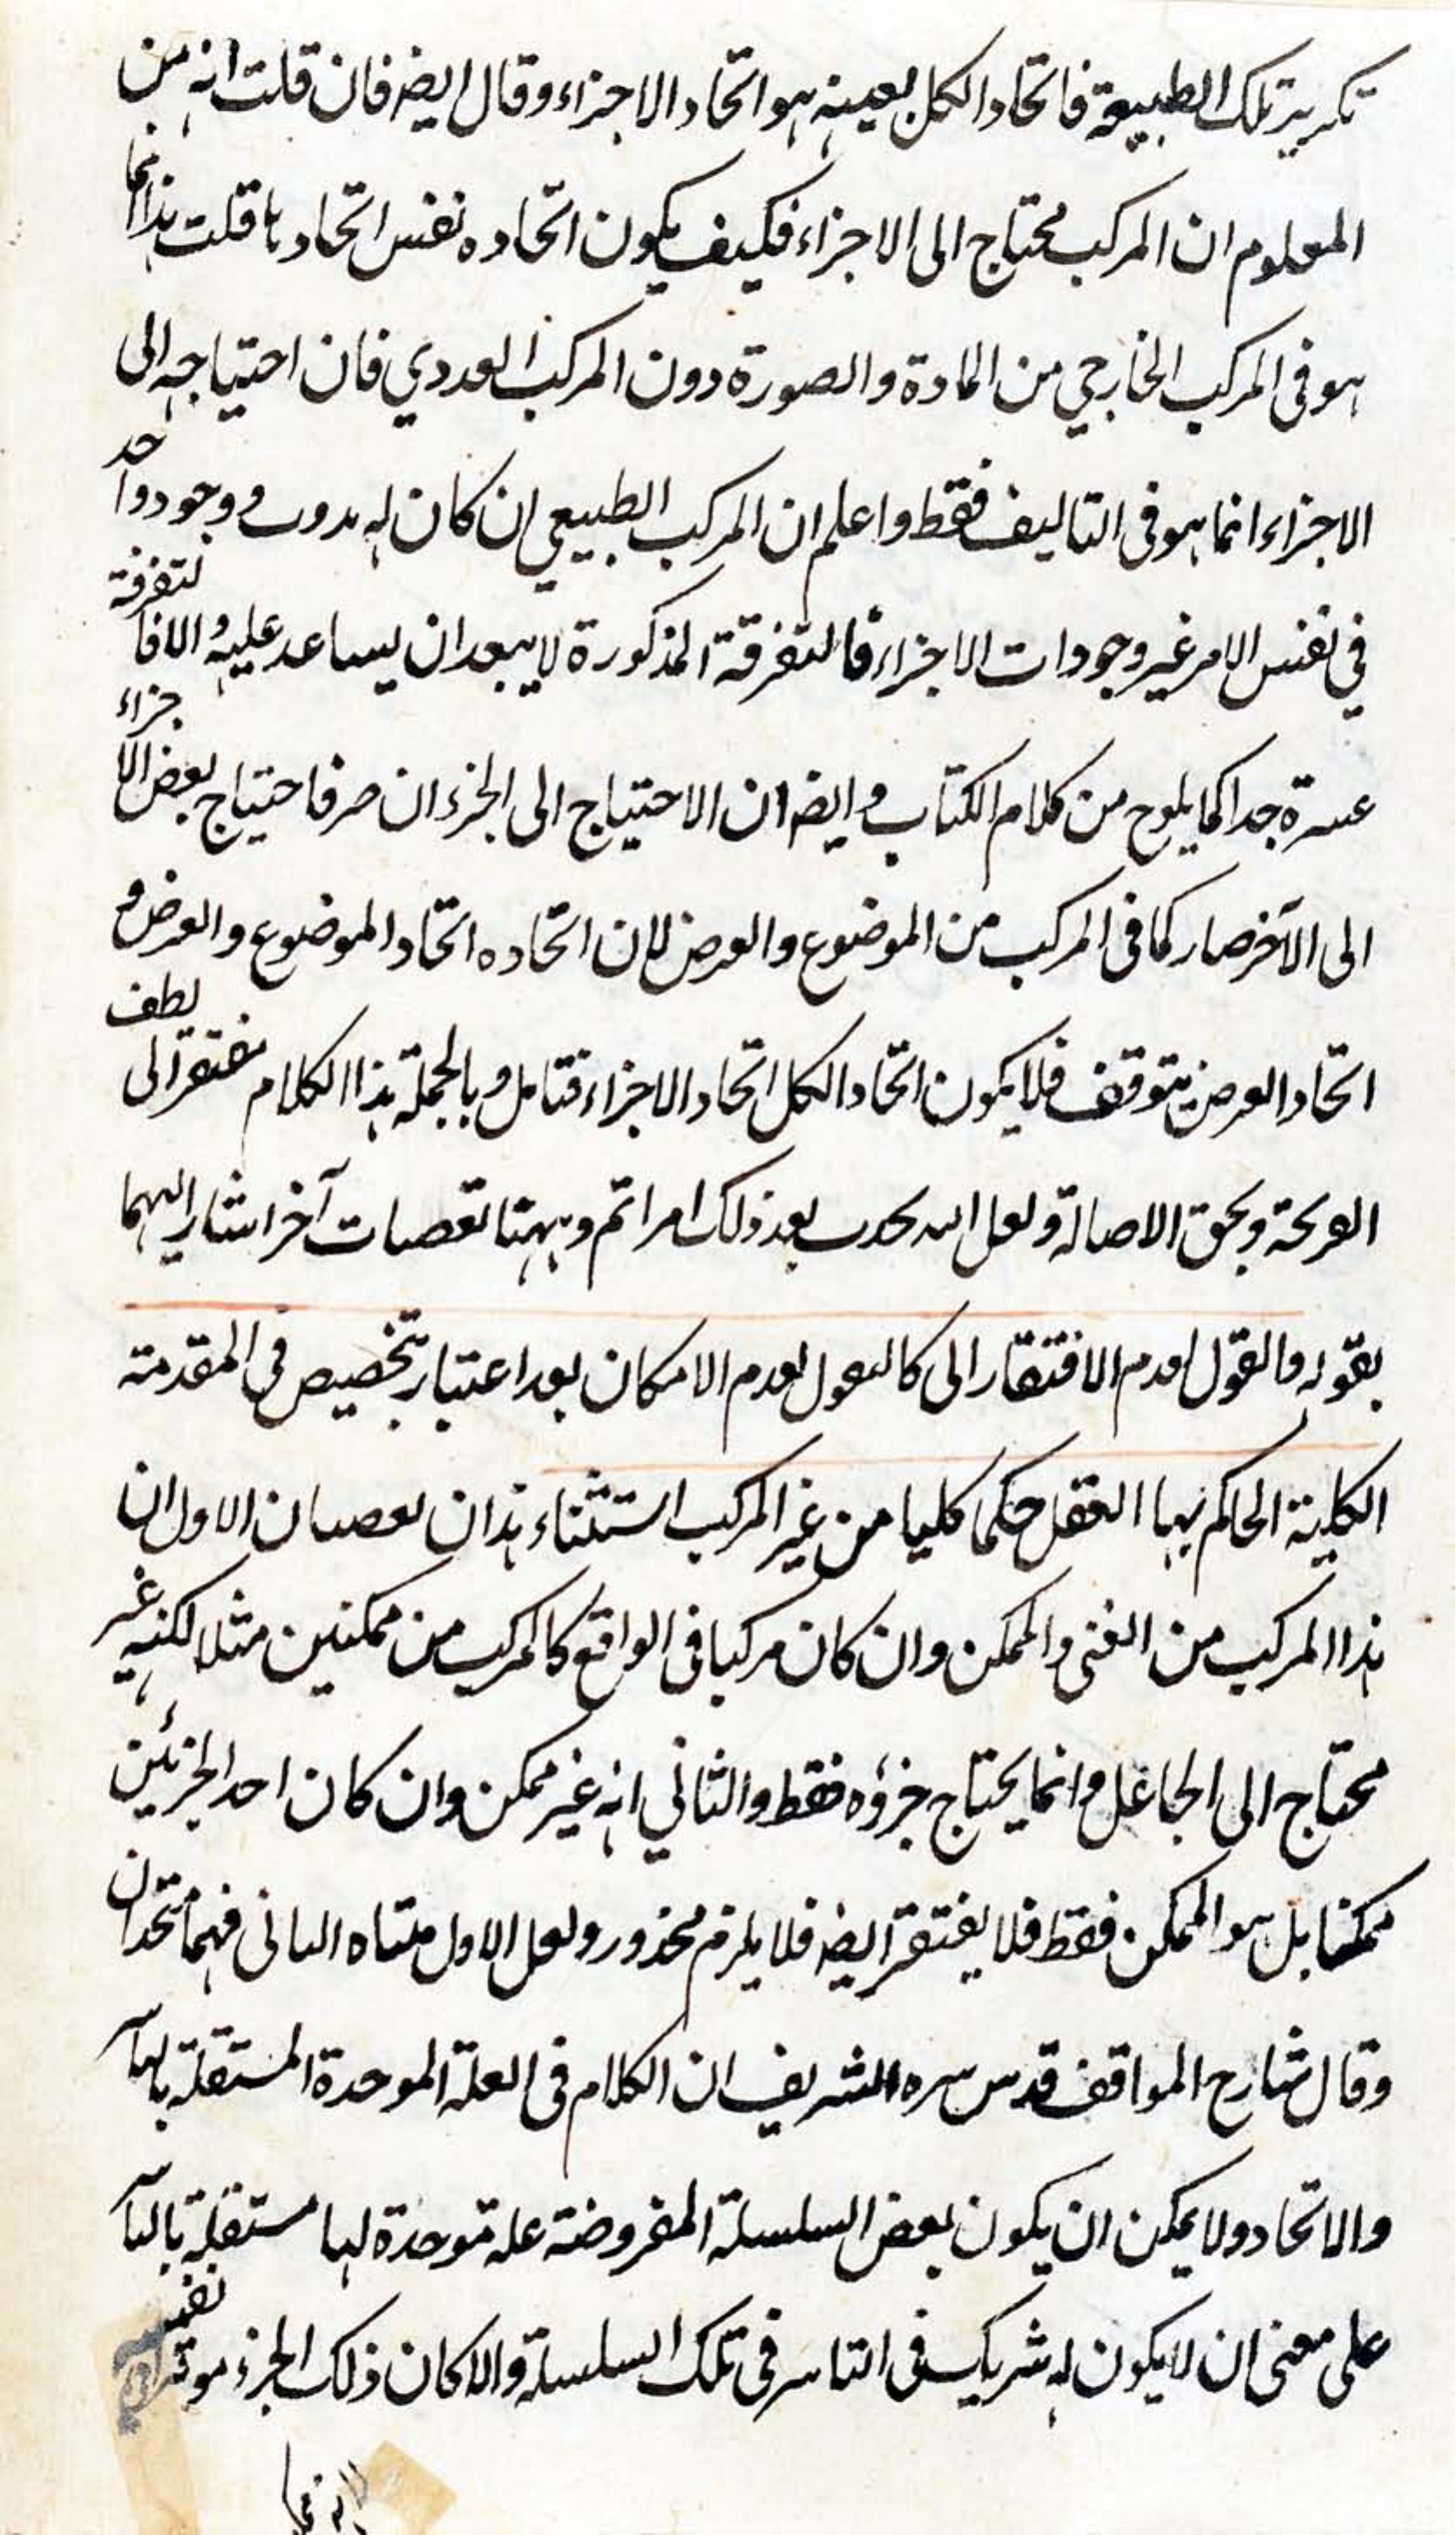 تلك الطبيعة فاتحاد الكل بعينه هو اتحاد الاجزاء وقال ايضه فان قلت انه من
المعلوم ان المركب محتاج الى الاجزاء فكيف يكون اتحاده نفس اتحادها قلت هذا انما
هو فى المركب الخارجي من المادة والصورة دون المركب العددي فان احتياجه الى
الاجزاء انما هو فى التاليف فقط واعلم ان المركب الطبيعي ان كان له وجود واحد
في نفس الامر غير وجودات الاجزاء فالتفرقة المذكورة لا يبعد ان يساعد عليه والا فالتفرقة
عسرة جدا كما يلوح من كلام الكتاب وايضه ان الاحتياج الى الجزء ان صرف احتياج بعض الاجزاء
الى الآخر صار كما فى المركب من الموضوع والعرض لان اتحاده اتحاد الموضوع والعرض و
اتحاد العرض يتوقف فلا يكون اتحاد الكل اتحاد الاجزاء فتامل وبالجملة هذا الكلام مفتقر الى لطف
القريحة وبحق الاصالة ولعل الله يحدث بعد ذلك امرا ثم وههنا تفصيات آخر اشار اليهما
بقوله والقول بعدم الافتقار الى كالقول بعدم الامكان بعد اعتبار تخصيص فى المقدمة
الكلية الحاكم بها العقل حكما كليا من غير المركب استثناء هذان تفصيان الاول ان
هذا المركب من الغنى والممكن وان كان مركبا فى الواقع كالمركب من ممكنين مثلا لكنه غير
محتاج الى الجاعل وانما يحتاج جزؤه فقط والثاني انه غير ممكن وان كان احد الجزئين
ممكنا بل هو الممكن فقط فلا يفتقر ايضه فلا يلزم محذور ولعل الاول منشاه الثانى فهما متحدان
وقال شارح المواقف قدس سره الشريف ان الكلام فى العلة الموحدة المستقلة بالتاثير
والاتحاد ولا يمكن ان يكون بعض السلسلة المفروضة علة موحدة لها مستقلة بالتاثير
على معنى ان لا يكون له شريك فى التاثير فى تلك السلسلة والا كان ذلك الجزء موثرا فى نفسه